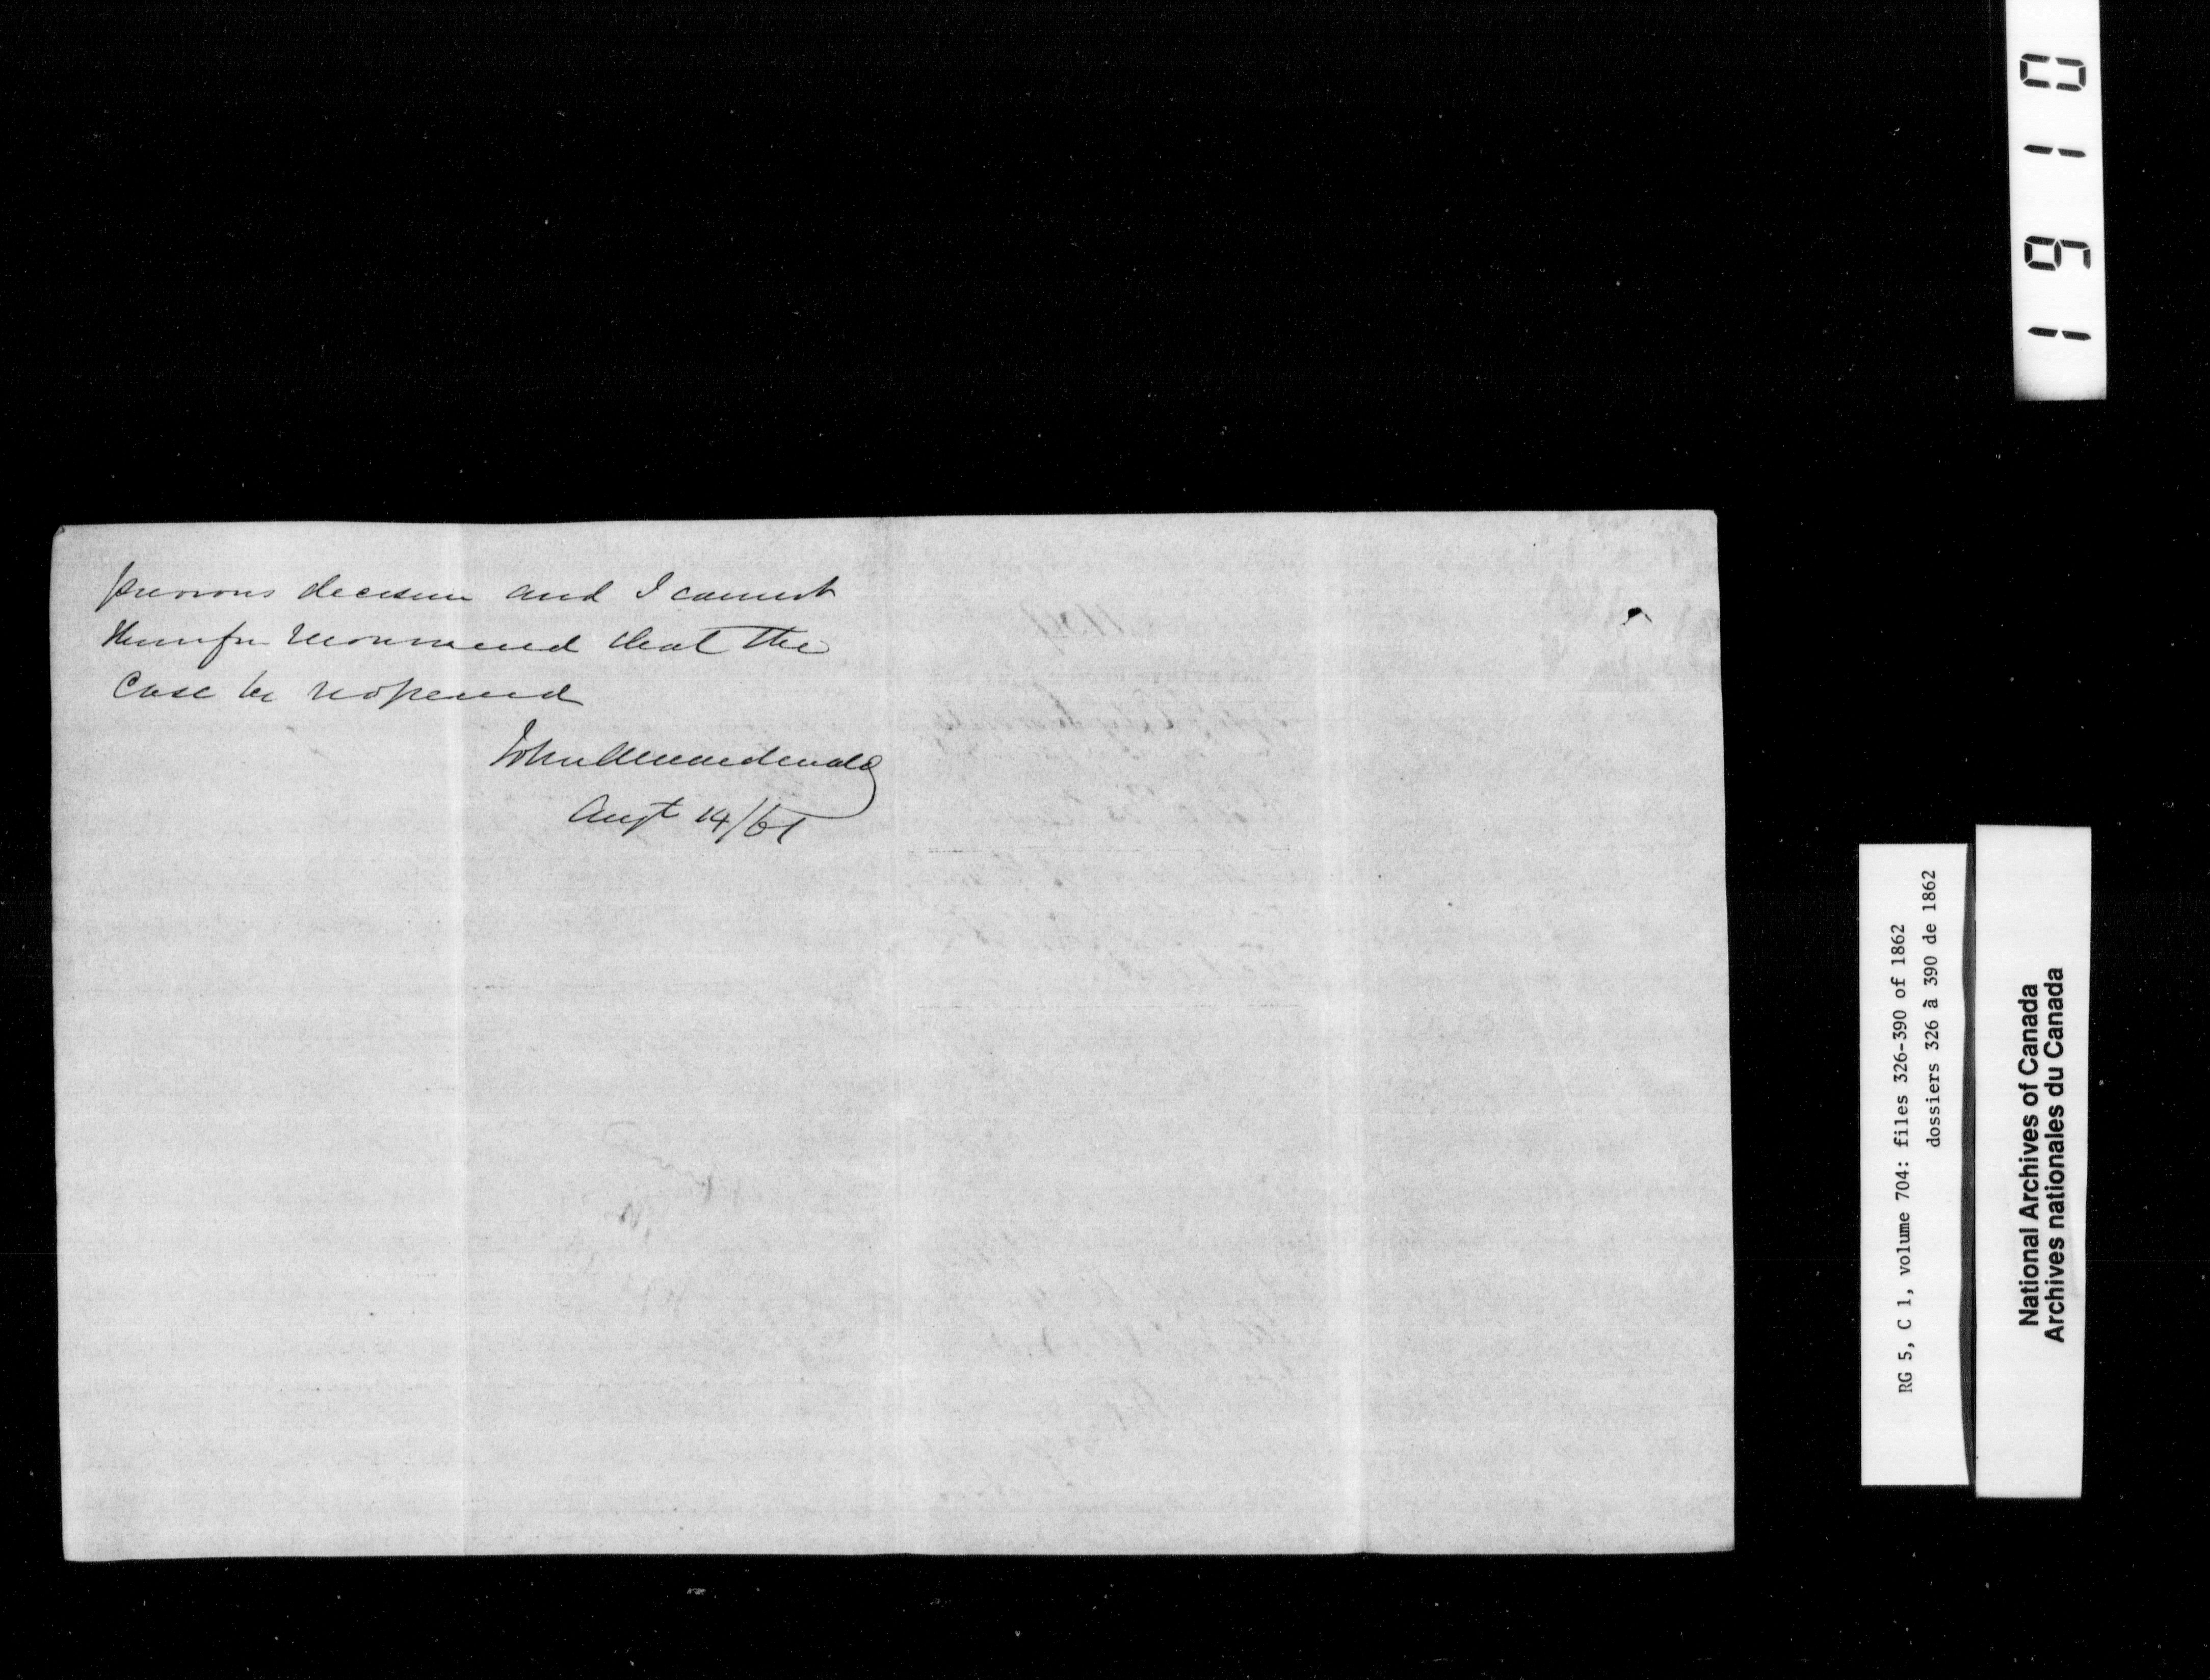 previous decision and I cannot
therefore recommend that the
Case be reopened
John A Macdonald
Augt 14/61
1910
RG 5, C 1, volume 704: files 326-390 of 1862
dossiers 326 à 390 de 1862
National Archives of Canada
Archives nationales du Canada